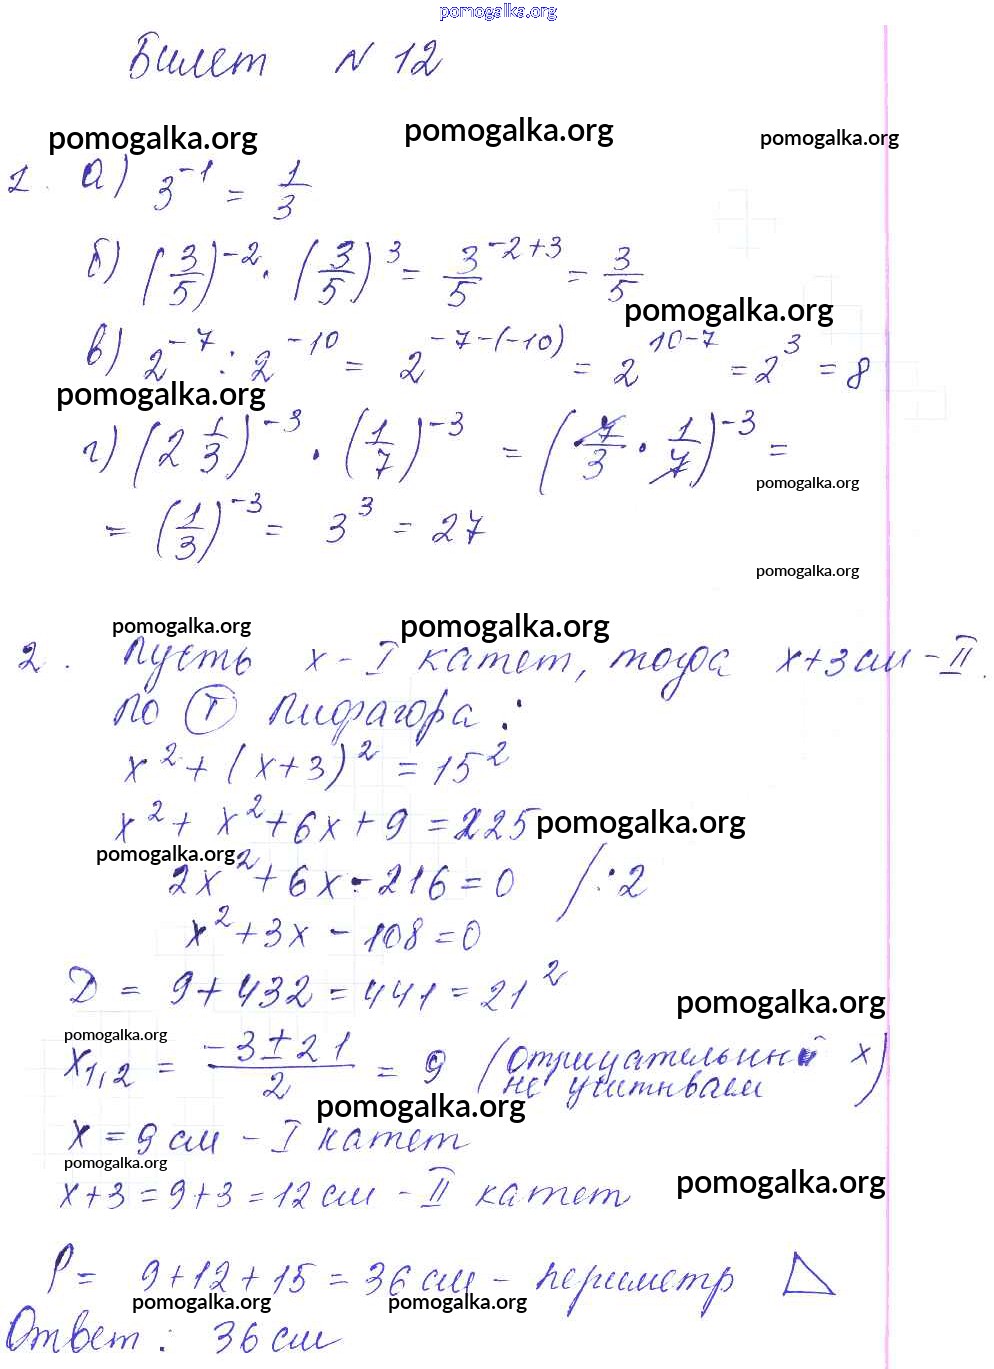 pomogalka.org
Билет N 12
pomogalka.org pomogalka.org pomogalka.org
1. а) 3^-1 = 1/3
б) (3/5)^-2 · (3/5)^3 = 3/5^-2+3 = 3/5
pomogalka.org
в) 2^-7 : 2^-10 = 2^-7-(-10) = 2^10-7 = 2^3 = 8
pomogalka.org
г) (2 1/3)^-3 · (1/7)^-3 = (7/3 · 1/7)^-3 =
pomogalka.org
= (1/3)^-3 = 3^3 = 27
pomogalka.org
pomogalka.org pomogalka.org
2. Пусть x - I катет, тогда x+3 см - II.
По Т Пифагора:
x^2 + (x+3)^2 = 15^2
x^2 + x^2 + 6x + 9 = 225 pomogalka.org
pomogalka.org
2x^2 + 6x - 216 = 0 /:2
x^2 + 3x - 108 = 0
D = 9 + 432 = 441 = 21^2
pomogalka.org
pomogalka.org
x1,2 = -3±21/2 = 9 (отрицательный x
не учитываем)
pomogalka.org
x = 9 см - I катет
pomogalka.org
x+3 = 9+3 = 12 см - II катет
pomogalka.org
P = 9+12+15 = 36 см - периметр
pomogalka.org pomogalka.org
Ответ: 36 см